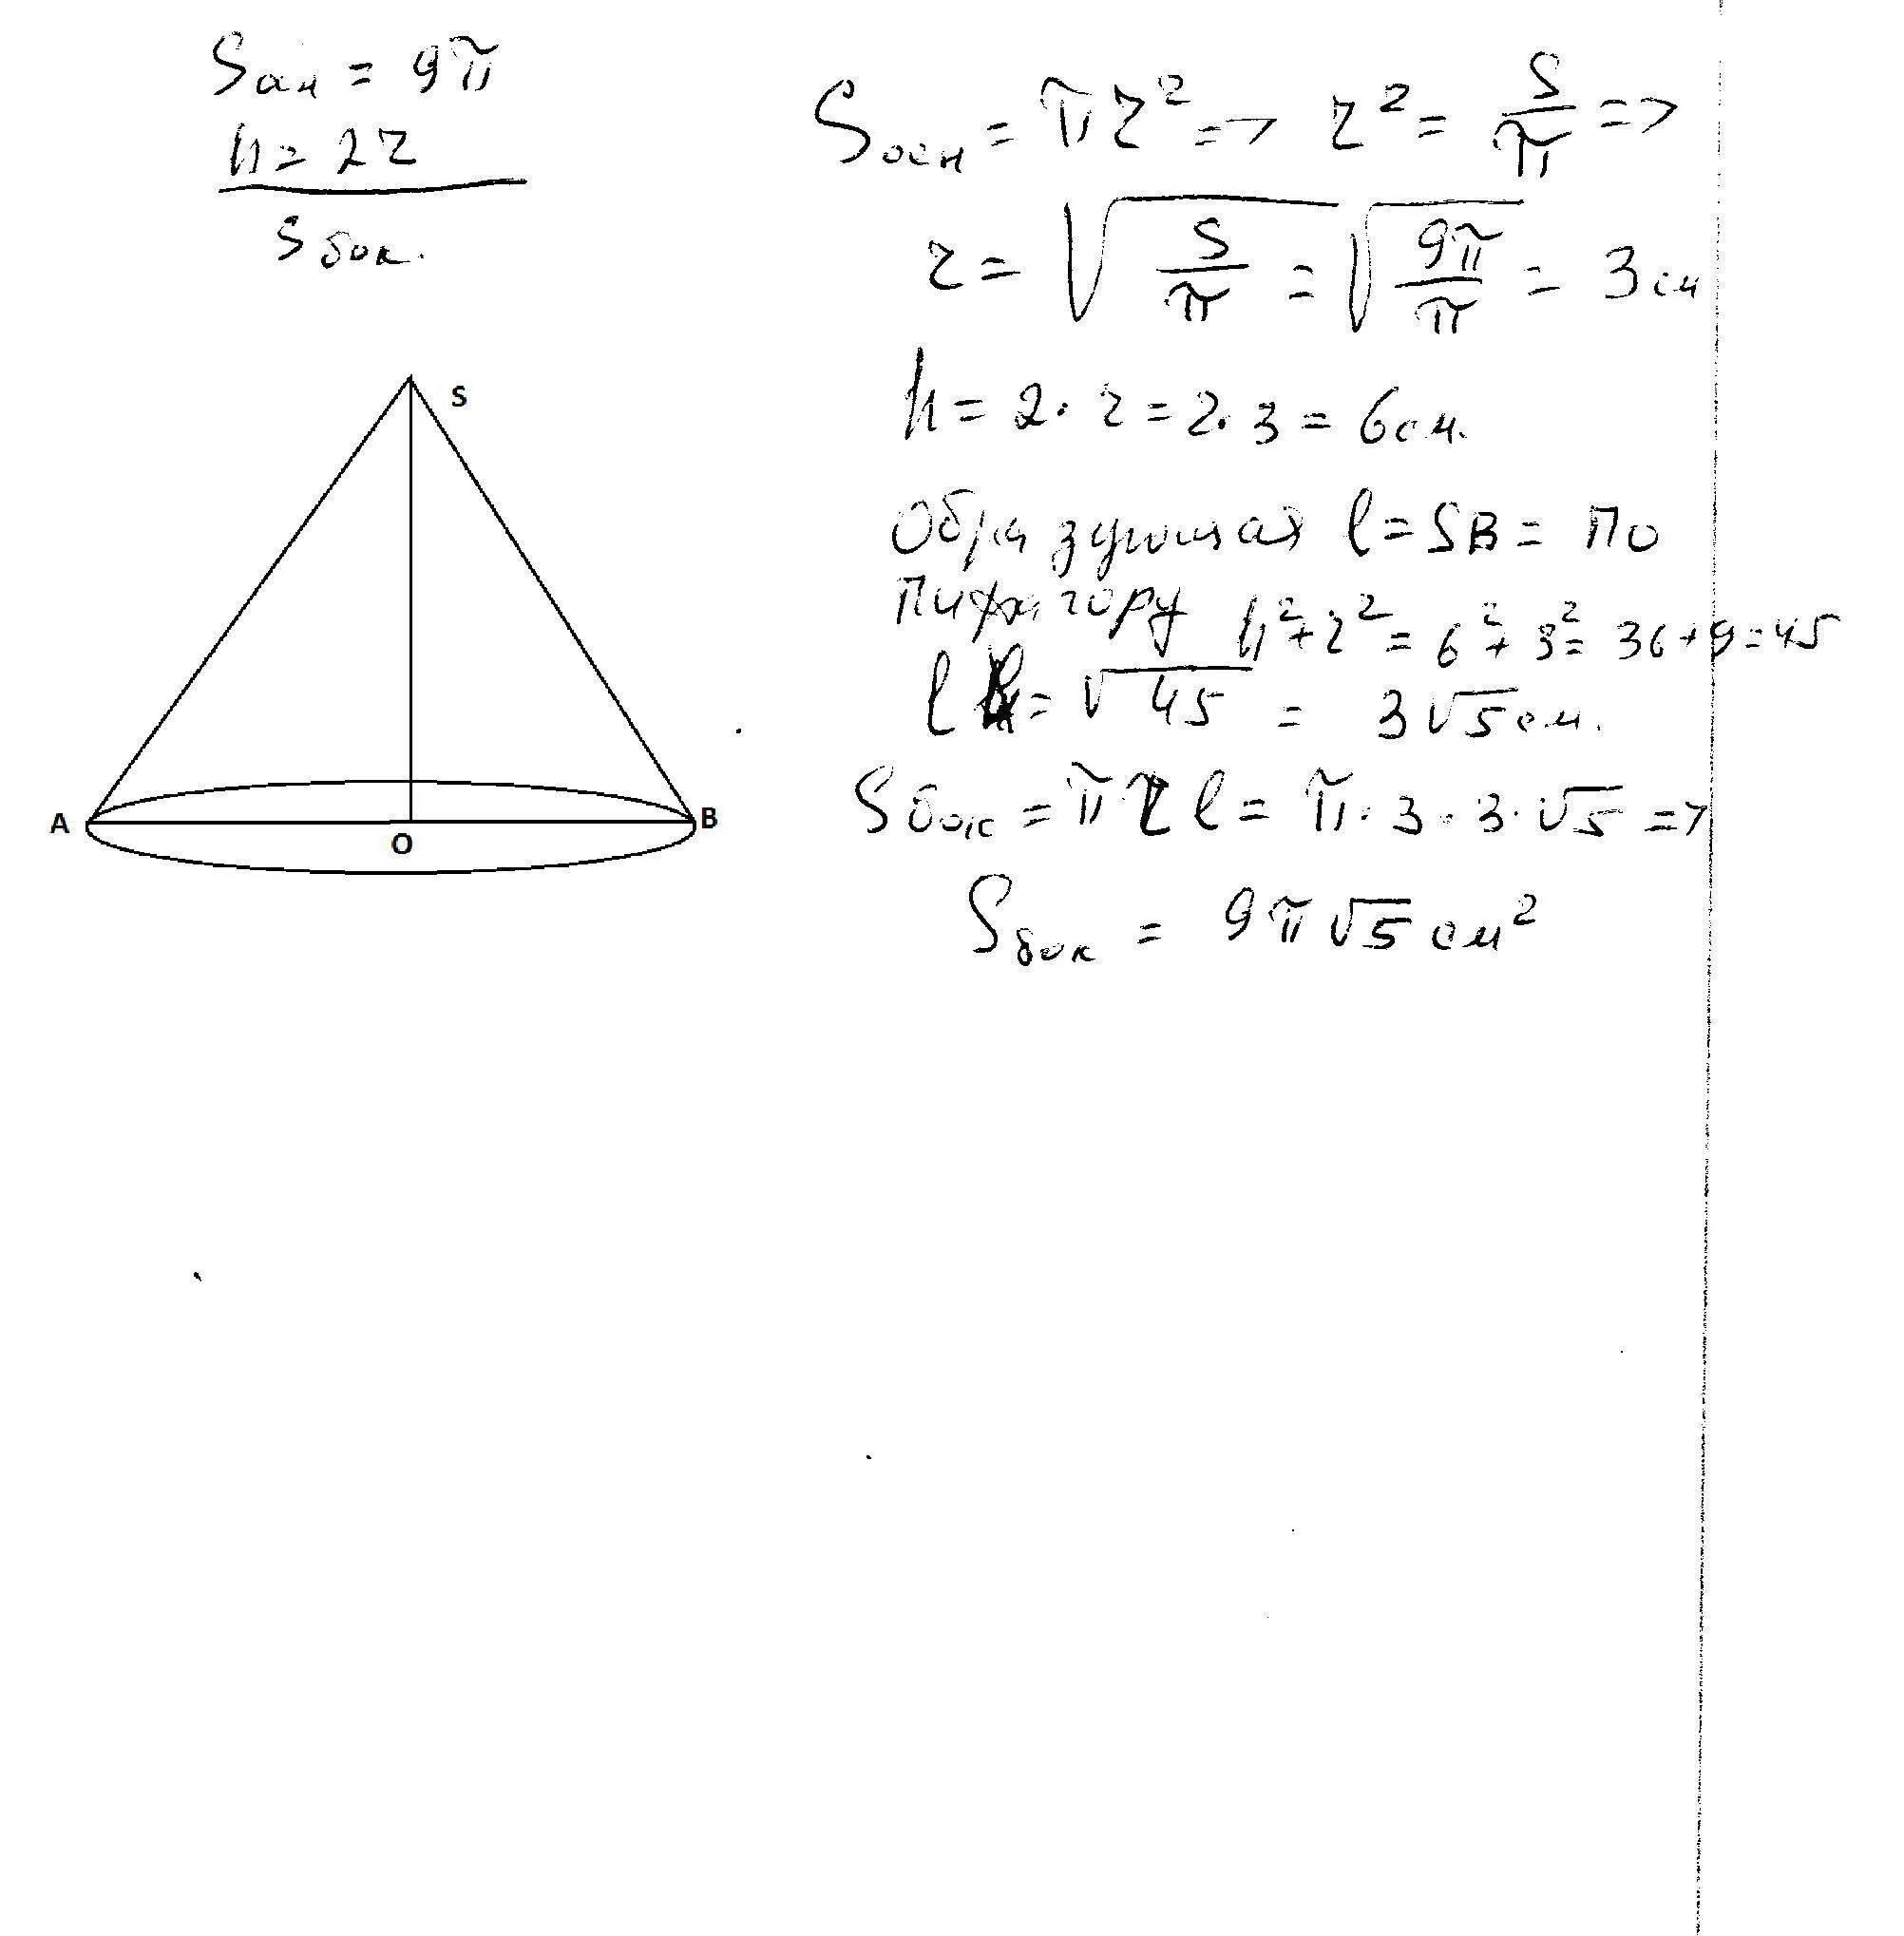 Sосн = 9π
h = 2r
Sбок.
S
A
O
B
Sосн = πr² => r² = S/π =>
r = √(S/π) = √(9π/π) = 3 см
h = 2 · r = 2 · 3 = 6 см.
Образующая l = SB = по
Пифагору h² + r² = 6² + 3² = 36 + 9 = 45
l = √45 = 3√5 см.
Sбок = πrl = π · 3 · 3 · √5 =>
Sбок = 9π√5 см²